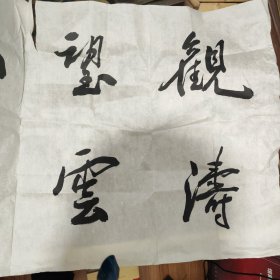 觀濤
望雲